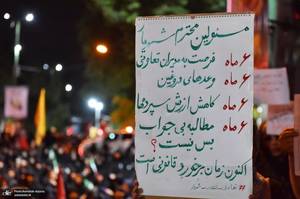 مسئولین محترم شهرما:
۶ ماه فرصت به مدیران تعاونی
۶ ماه وعدهای دروغین
۶ ماه کاهش ارزش سپردها
۶ ماه مطالبه بی جواب
بس نیست؟
اکنون زمان برخورد قانونی است